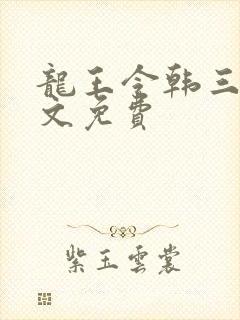 龍王令韩三
文免費
紫玉雲裳